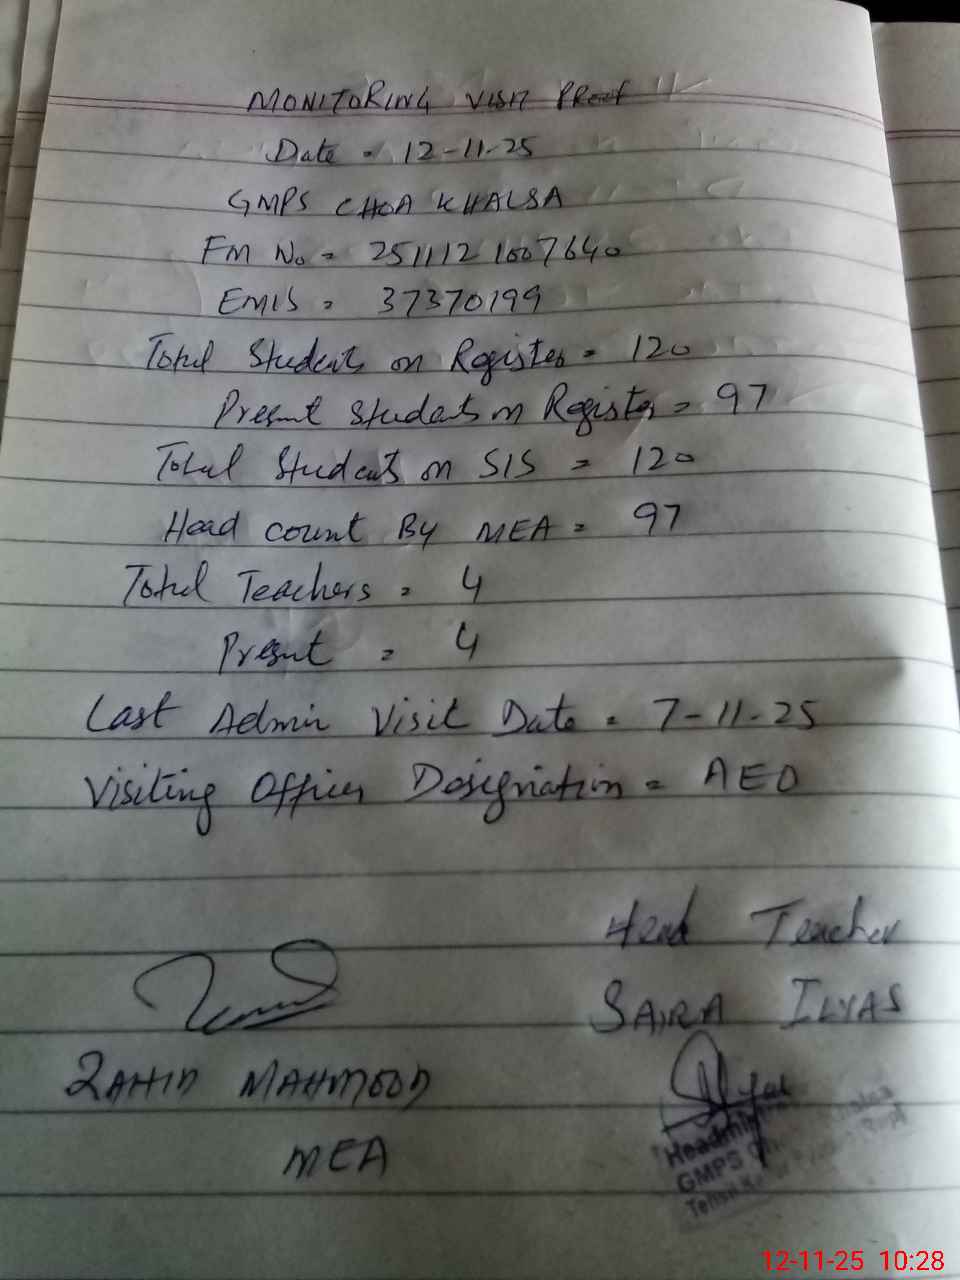 MONITORING VISIT PROOF
Date = 12-11-25
GMPS CHOA KHALSA
FM No = 2511121007640
EMIS = 37370199
Total Students on Register = 120
Present Students on Register = 97
Total Students on SIS = 120
Head count By MEA = 97
Total Teachers = 4
Present = 4
Last Admin Visit Date = 7-11-25
Visiting Officer Designation = AEO
Head Teacher
SAIRA ILYAS
ZAHID MAHMOOD
MEA
GMPS
12-11-25 10:28